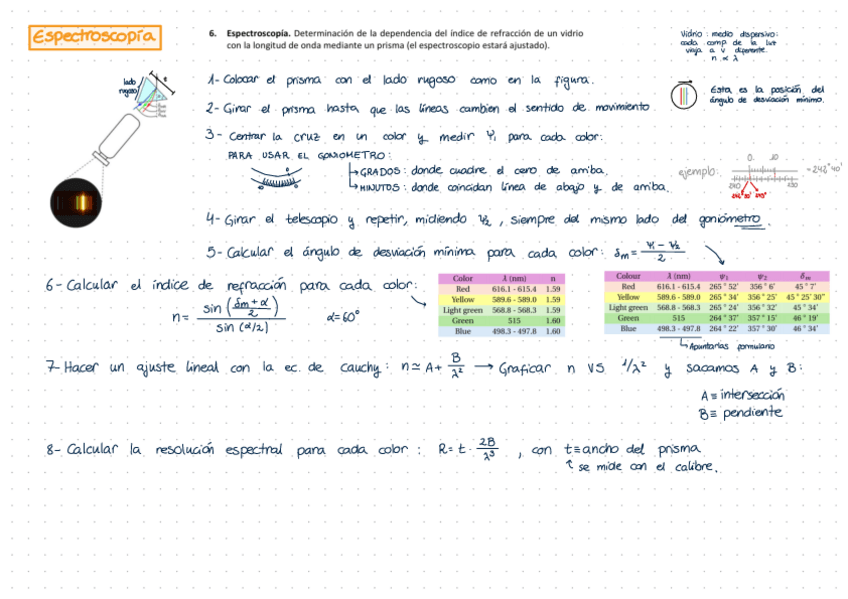 Espectroscopía
6. Espectroscopía. Determinación de la dependencia del índice de refracción de un vidrio
con la longitud de onda mediante un prisma (el espectroscopio estará ajustado).
Vidrio: medio dispersivo:
cada comp. de la luz
viaja a v diferente.
n ∝ λ
lado
rugoso
1- Colocar el prisma con el lado rugoso como en la figura.
2- Girar el prisma hasta que las líneas cambien el sentido de movimiento.
Esta es la posición del
ángulo de desviación mínimo.
3- Centrar la cruz en un color y medir Ψ₁ para cada color:
PARA USAR EL GONIOMETRO:
GRADOS: donde cuadre el cero de arriba.
MINUTOS: donde coincidan línea de abajo y de arriba.
ejemplo:
0 10
240 250
4- Girar el telescopio y repetir, midiendo Ψ₂, siempre del mismo lado del goniómetro.
5- Calcular el ángulo de desviación mínima para cada color: δm = (Ψ₁ - Ψ₂)/2
6- Calcular el índice de refracción para cada color:
n = sin((δm + α)/2) / sin(α/2)
α=60°
Color λ (nm) n
Red 616.1 - 615.4 1.59
Yellow 589.6 - 589.0 1.59
Light green 568.8 - 568.3 1.59
Green 515 1.60
Blue 498.3 - 497.8 1.60
Colour λ (nm) ψ₁ ψ₂ δm
Red 616.1 - 615.4 265°52' 356°6' 45°7'
Yellow 589.6 - 589.0 265°34' 356°25' 45°25'30"
Light green 568.8 - 568.3 265°24' 356°32' 45°34'
Green 515 264°37' 357°15' 46°19'
Blue 498.3 - 497.8 264°22' 357°30' 46°34'
Apuntarlas formulario
7- Hacer un ajuste lineal con la ec. de Cauchy: n ≃ A + B/λ² → Graficar n VS 1/λ² y sacamos A y B:
A ≡ intersección
B ≡ pendiente
8- Calcular la resolución espectral para cada color: R = t · 2B/λ³, con t ≡ ancho del prisma
↑ se mide con el calibre.